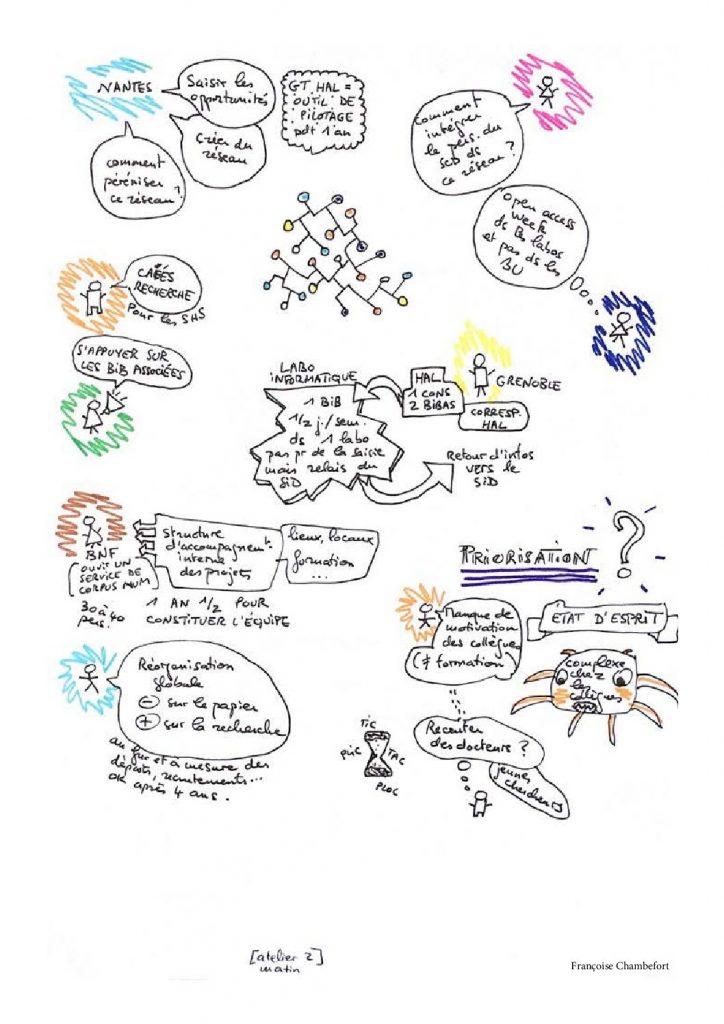 NANTES
Saisir les
opportunités
créer du
réseau
comment
péréniser
ce réseau?
GT HAL =
OUTIL DE
PILOTAGE
pdt 1 an
comment
intégrer
le pers. du
SCD ds
ce réseau ?
open access
week
ds les labos
et pas ds les
BU
CAFÉS
RECHERCHE
pour les SHS
S'APPUYER SUR
LES BIB ASSOCIÉES
LABO
INFORMATIQUE
1 BIB
1/2 j./sem.
ds 1 labo
pas pr de la saisie
mais relais du
SID
HAL
1 CONS
2 BIBAS
GRENOBLE
CORRESP.
HAL
Retour d'infos
vers le
SID
BNF
OUVRIR UN
SERVICE DE
CORPUS NUM
30 à 40
pers.
structure
d'accompagnent
interne
des projets
lieux, locaux
formation
...
1 AN 1/2 POUR
CONSTITUER L'ÉQUIPE
PRIORISATION
?
Manque de
motivation
des collègues
(≠ formation)
ETAT D'ESPRIT
complexe
chez
les
collègues
Réorganisation
globale
- sur le papier
+ sur la recherche
au fur et à mesure des
départs, recrutements...
OK après 4 ans.
TIC
TAC
PLIC
PLOC
Recruter
des docteurs ?
jeunes
chercheurs
[atelier 2]
matin
Françoise Chambefort